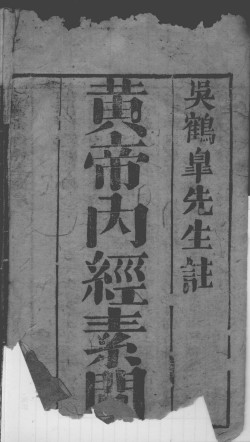 吳鶴臯先生註
黃帝內經素問